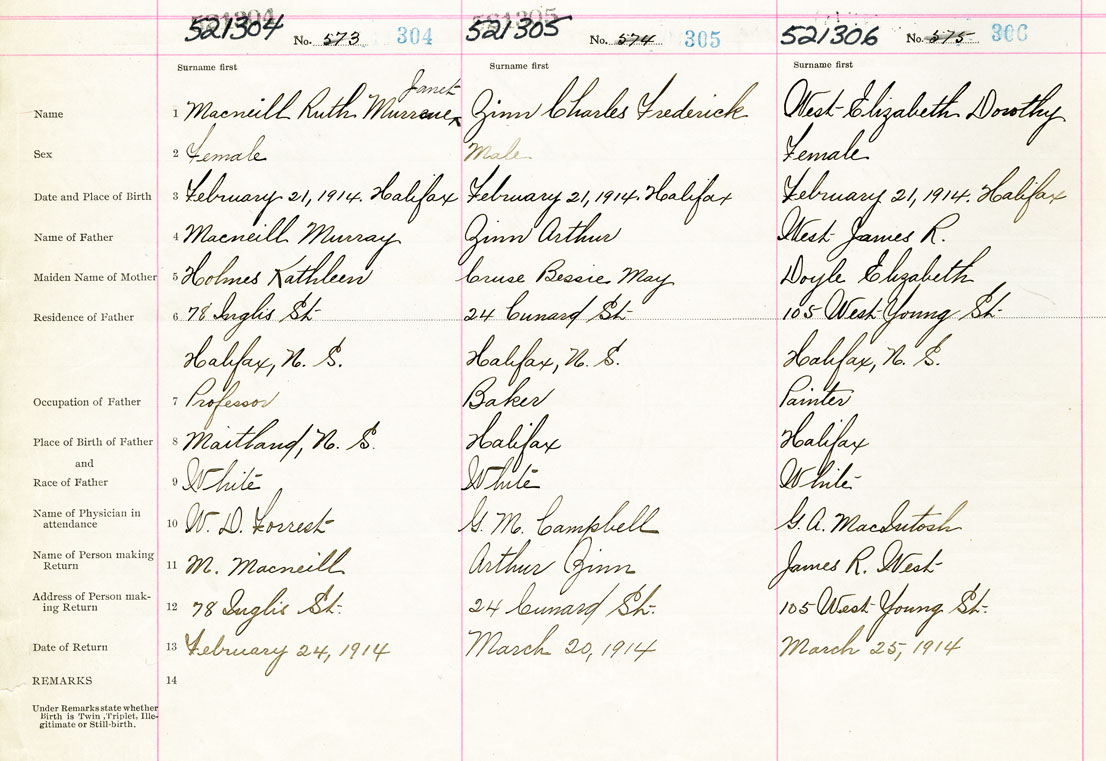 521304 No. 573 304 521305 No. 574 305 521306 No. 575 306
Surname first Surname first Surname first
Janet
Name 1 Macneill Ruth Zinn Charles Frederick West Elizabeth Dorothy
Sex 2 Female Male Female
Date and Place of Birth 3 February 21, 1914. Halifax February 21, 1914. Halifax February 21, 1914. Halifax
Name of Father 4 Macneill Murray Zinn Arthur West James R.
Maiden Name of Mother 5 Holmes Kathleen Cruse Bessie May Doyle Elizabeth
Residence of Father 6 78 Inglis St. 24 Cunard St. 105 West Young St.
Halifax, N. S. Halifax, N. S. Halifax, N. S.
Occupation of Father 7 Professor Baker Painter
Place of Birth of Father 8 Maitland, N. S. Halifax Halifax
and
Race of Father 9 White White White
Name of Physician in attendance 10 W. D. Forrest G. M. Campbell G. A. MacIntosh
Name of Person making Return 11 M. Macneill Arthur Zinn James R. West
Address of Person mak-ing Return 12 78 Inglis St. 24 Cunard St. 105 West Young St.
Date of Return 13 February 24, 1914 March 20, 1914 March 25, 1914
REMARKS 14
Under Remarks state whether
Birth is Twin, Triplet, Ille-
gitimate or Still-birth.